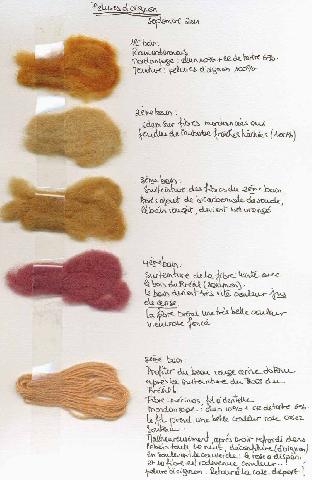 Pelures d'oignon
Septembre 2011
1er bain:
Mordançage: alun 10% + cr de tartre 6%
Teinture: pelures d'oignon 100%
2ème bain:
idem sur fibres mordancées aux
feuilles de rhubarbe fraîches hâchées (100%)
3ème bain:
Surteinture des fibres du 2ème bain
Par ajout de bicarbonate de soude,
le bain rougit, devient orangé
4ème bain:
Surteinture de la fibre traité avec
le bain du
le bain devient très vite couleur jus
de cerise.
La fibre prend une très belle couleur
vieux rose foncé
5ème bain:
Profiter du beau rouge cerise du bain
après la surteinture du bois du
Fibre: mérinos, fil dentelle
Mordançage: alun 10% + cr de tartre 6%
Le fil prend une belle couleur rose
Malheureusement, après avoir refroidi dans
le bain toute la nuit,
En soulevant le couvercle: le rose a disparu
et la fibre est redevenue couleur...
pelure d'oignon. Retour à la case départ!